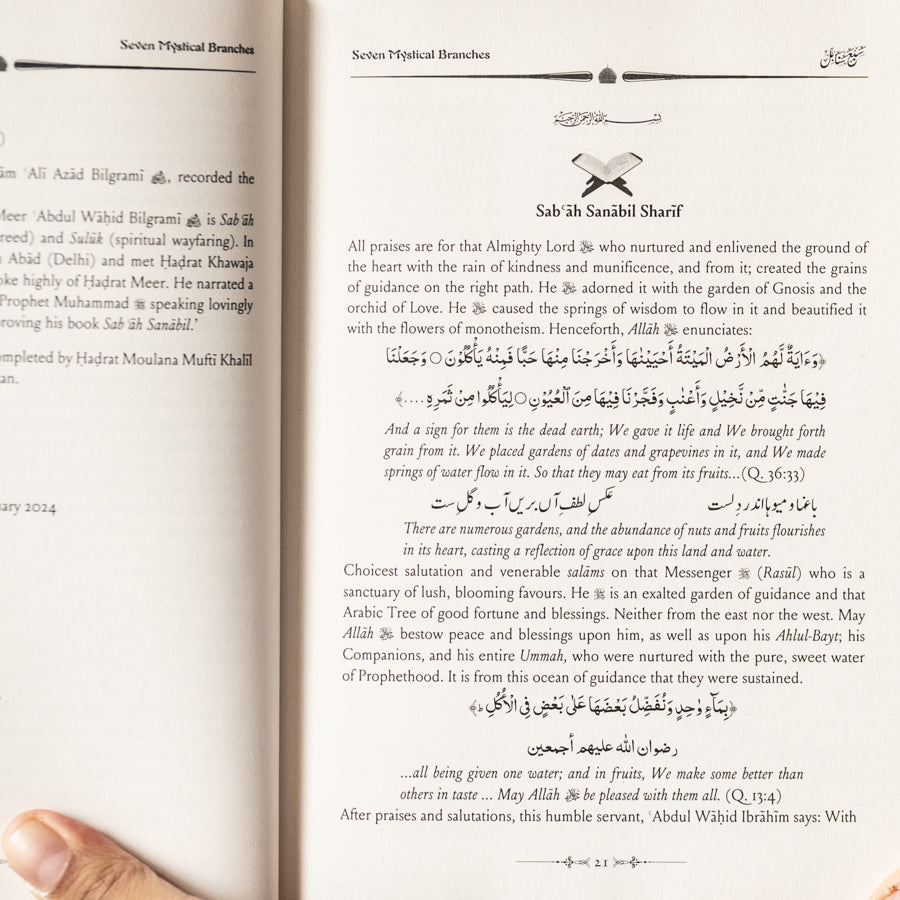 Seven Mystical Branches
)
ām ʿAlī Azād Bilgramī, recorded the
Meer ʿAbdul Wāḥid Bilgramī is Sabʿāh
reed) and Sulūk (spiritual wayfaring). In
Abād (Delhi) and met Ḥaḍrat Khawaja
oke highly of Ḥaḍrat Meer. He narrated a
Prophet Muhammad ﷺ speaking lovingly
roving his book Sabʿāh Sanābil.’
ompleted by Ḥaḍrat Moulana Muftī Khalīl
an.
ary 2024
Seven Mystical Branches
سبع سنابل
بسم الله الرحمن الرحيم
Sabʿāh Sanābil Sharīf
All praises are for that Almighty Lord ﷻ who nurtured and enlivened the ground of
the heart with the rain of kindness and munificence, and from it; created the grains
of guidance on the right path. He ﷻ adorned it with the garden of Gnosis and the
orchid of Love. He ﷻ caused the springs of wisdom to flow in it and beautified it
with the flowers of monotheism. Henceforth, Allāh ﷻ enunciates:
﴿وَءَايَةٌ لَّهُمُ الْأَرْضُ الْمَيْتَةُ أَحْيَيْنَٰهَا وَأَخْرَجْنَا مِنْهَا حَبًّا فَمِنْهُ يَأْكُلُوْنَ ○ وَجَعَلْنَا
فِيْهَا جَنّٰتٍ مِّنْ نَّخِيْلٍ وَأَعْنٰبٍ وَفَجَّرْنَا فِيْهَا مِنَ الْعُيُوْنِ ○ لِيَأْكُلُوا مِنْ ثَمَرِهِ ....﴾
And a sign for them is the dead earth; We gave it life and We brought forth
grain from it. We placed gardens of dates and grapevines in it, and We made
springs of water flow in it. So that they may eat from its fruits…(Q. 36:33)
باغہا و میوہا اندر دِلست عکسِ لطفِ آں بریں آب و گلِ ست
There are numerous gardens, and the abundance of nuts and fruits flourishes
in its heart, casting a reflection of grace upon this land and water.
Choicest salutation and venerable salāms on that Messenger ﷺ (Rasūl) who is a
sanctuary of lush, blooming favours. He ﷺ is an exalted garden of guidance and that
Arabic Tree of good fortune and blessings. Neither from the east nor the west. May
Allāh ﷻ bestow peace and blessings upon him, as well as upon his Ahlul-Bayt; his
Companions, and his entire Ummah, who were nurtured with the pure, sweet water
of Prophethood. It is from this ocean of guidance that they were sustained.
﴿بِمَآءٍ وٰحِدٍ وَنُفَضِّلُ بَعْضَهَا عَلٰى بَعْضٍ فِى الْأُكُلِ ط﴾
رضوان الله عليهم أجمعين
…all being given one water; and in fruits, We make some better than
others in taste … May Allāh ﷻ be pleased with them all. (Q. 13:4)
After praises and salutations, this humble servant, ʿAbdul Wāḥid Ibrāhīm says: With
21